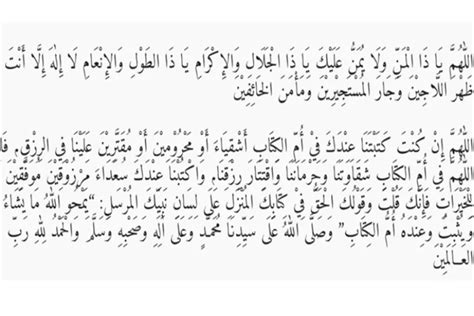 اللَّهُمَّ يَا ذَا الْمَنِّ وَلَا يُمَنُّ عَلَيْكَ يَا ذَا الْجَلَالِ وَالإِكْرَامِ يَا ذَا الطَّوْلِ وَالإِنْعَامِ لَا إِلَهَ إِلَّا أَنْتَ
ظَهْرَ اللَّاجِيْنَ وَجَارَ الْمُسْتَجِيْرِيْنَ وَمَأْمَنَ الْخَائِفِيْنَ
اللَّهُمَّ إِنْ كُنْتَ كَتَبْتَنَا عِنْدَكَ فِيْ أُمِّ الْكِتَابِ أَشْقِيَاءَ أَوْ مَحْرُوْمِيْنَ أَوْ مُقَتَّرِيْنَ عَلَيْنَا فِي الرِّزْقِ،
اللَّهُمَّ فِيْ أُمِّ الْكِتَابِ شَقَاوَتَنَا وَحِرْمَانَنَا وَاقْتِتَارَ رِزْقِنَا، وَاكْتُبْنَا عِنْدَكَ سُعَدَاءَ مَرْزُوْقِيْنَ مُوَفَّقِيْنَ
لِلْخَيْرَاتِ فَإِنَّكَ قُلْتَ وَقَوْلُكَ الْحَقُّ فِيْ كِتَابِكَ الْمُنْزَلِ عَلَى لِسَانِ نَبِيِّكَ الْمُرْسَلِ: “يَمْحُو اللهُ مَا يَشَاءُ
وَيُثْبِتُ وَعِنْدَهُ أُمُّ الْكِتَابِ” وَصَلَّى اللهُ عَلَى سَيِّدِنَا مُحَمَّدٍ وَعَلَى آلِهِ وَصَحْبِهِ وَسَلَّمَ وَالْحَمْدُ لِلهِ رَبِّ
الْعَالَمِيْنَ